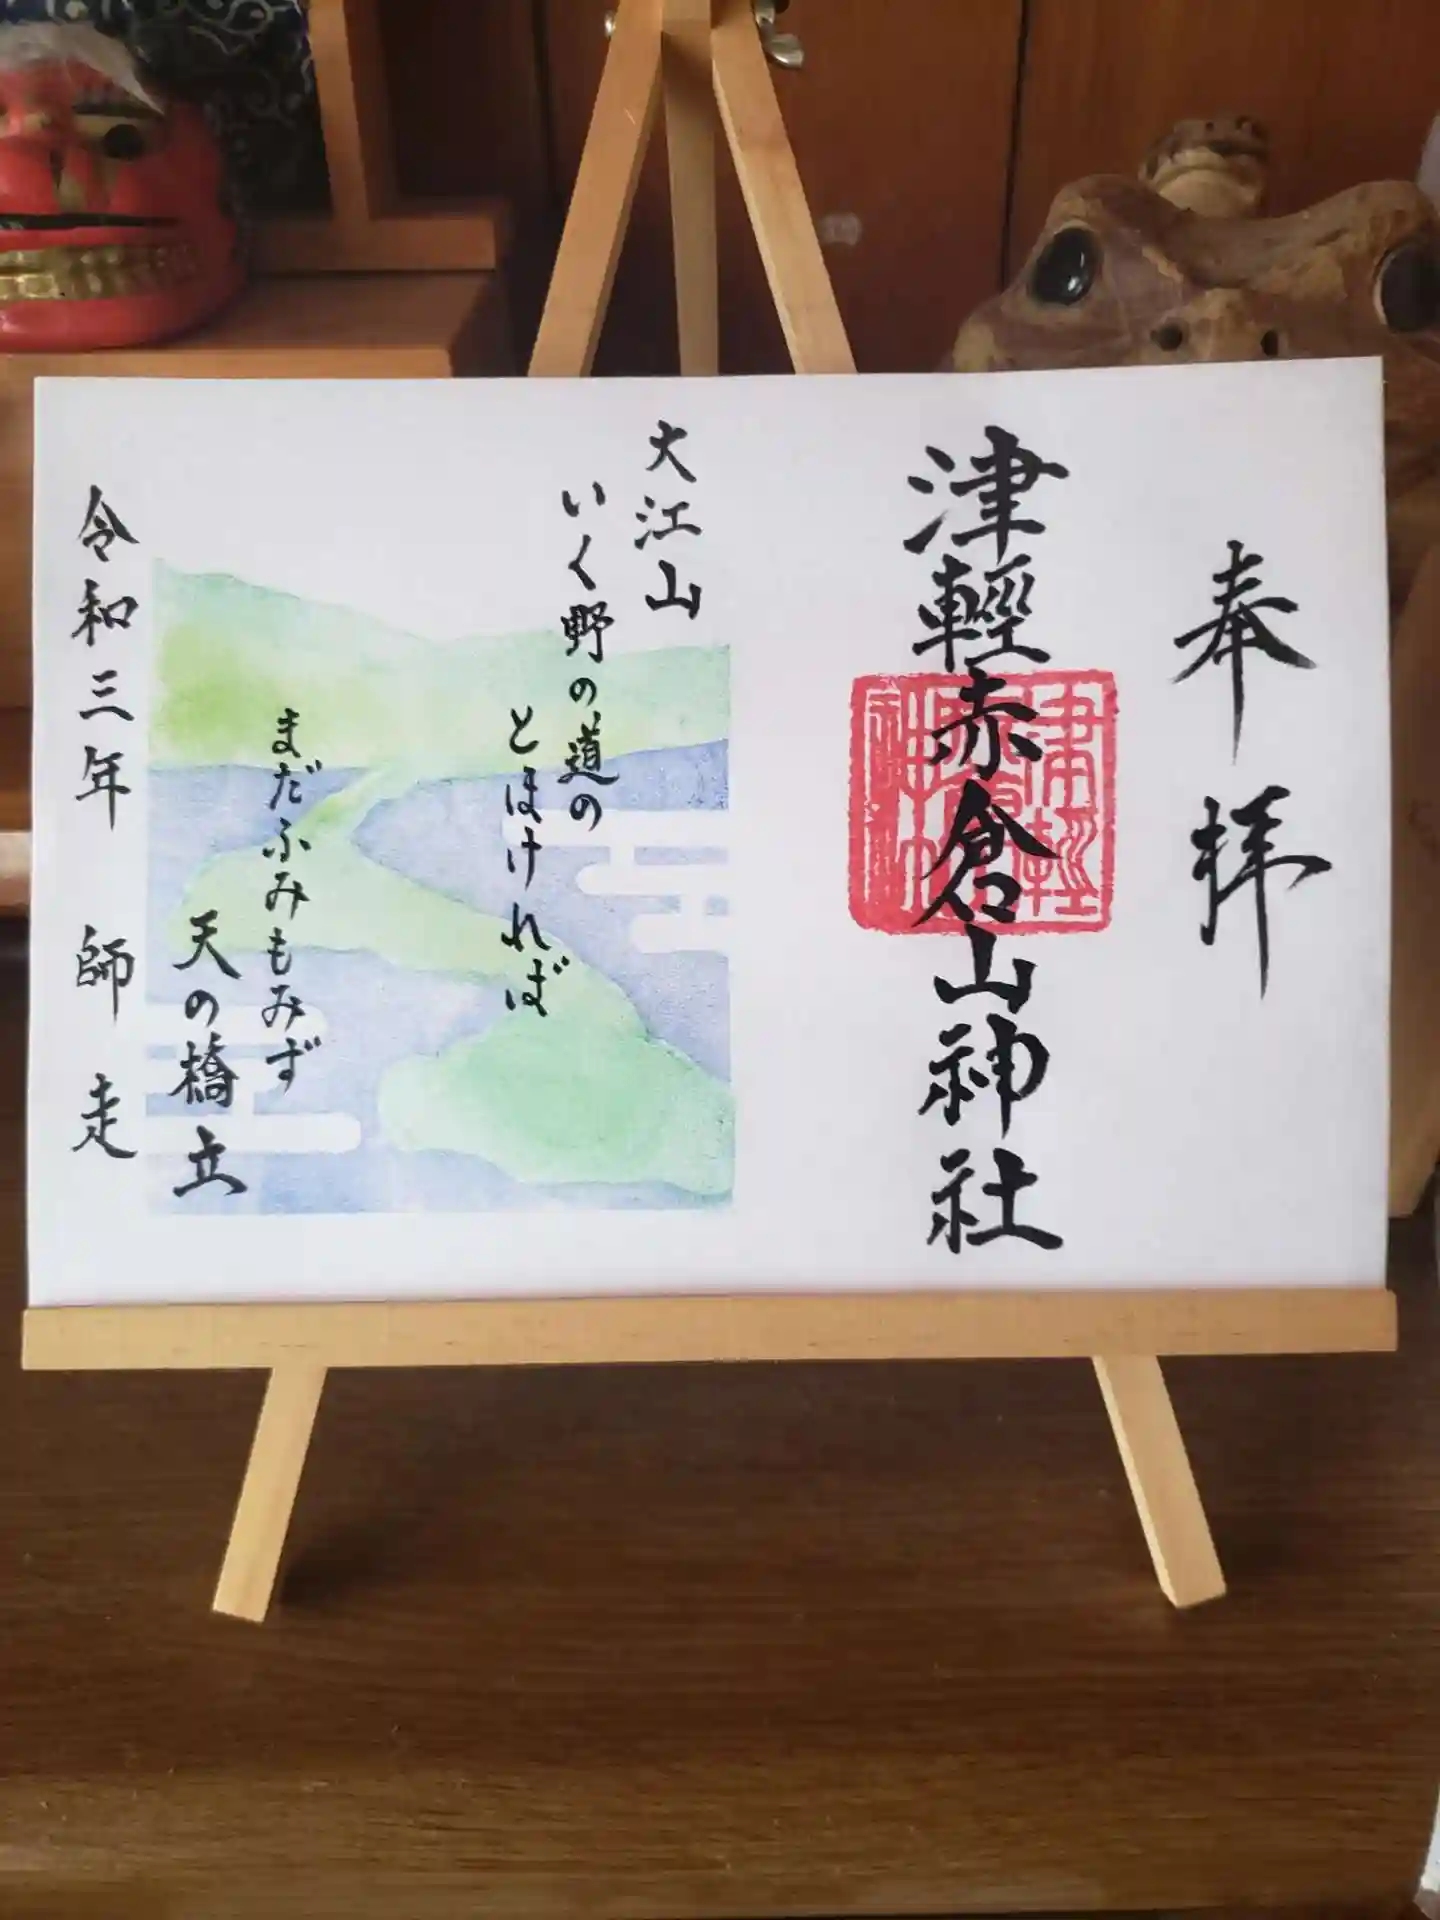 奉拝
津輕赤倉山神社
大江山
いく野の道の
とほければ
まだふみもみず
天の橋立
令和三年 師走